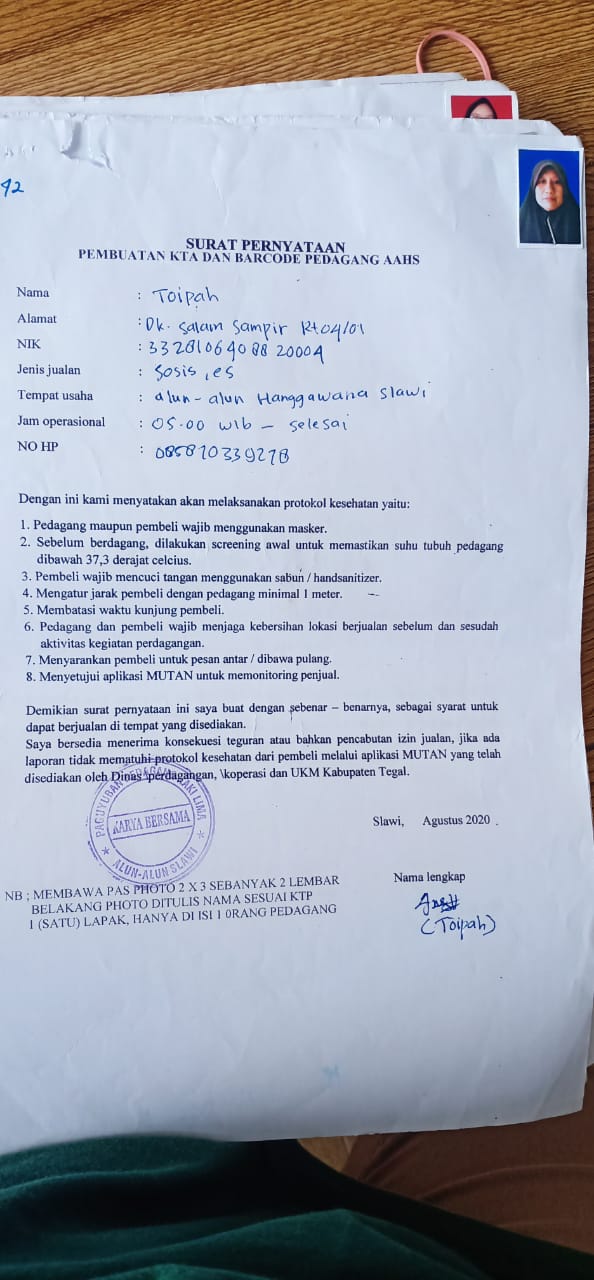 42
SURAT PERNYATAAN
PEMBUATAN KTA DAN BARCODE PEDAGANG AAHS
Nama : Toipah
Alamat : Dk. Salam Sampir Rt04/01
NIK : 3328106408820004
Jenis jualan : Sosis, es
Tempat usaha : alun-alun Hanggawana Slawi
Jam operasional : 05.00 wib - selesai
NO HP : 085870339278
Dengan ini kami menyatakan akan melaksanakan protokol kesehatan yaitu:
1. Pedagang maupun pembeli wajib menggunakan masker.
2. Sebelum berdagang, dilakukan screening awal untuk memastikan suhu tubuh pedagang
dibawah 37,3 derajat celcius.
3. Pembeli wajib mencuci tangan menggunakan sabun / handsanitizer.
4. Mengatur jarak pembeli dengan pedagang minimal 1 meter.
5. Membatasi waktu kunjung pembeli.
6. Pedagang dan pembeli wajib menjaga kebersihan lokasi berjualan sebelum dan sesudah
aktivitas kegiatan perdagangan.
7. Menyarankan pembeli untuk pesan antar / dibawa pulang.
8. Menyetujui aplikasi MUTAN untuk memonitoring penjual.
Demikian surat pernyataan ini saya buat dengan sebenar – benarnya, sebagai syarat untuk
dapat berjualan di tempat yang disediakan.
Saya bersedia menerima konsekuesi teguran atau bahkan pencabutan izin jualan, jika ada
laporan tidak mematuhi protokol kesehatan dari pembeli melalui aplikasi MUTAN yang telah
disediakan oleh Dinas \perdagangan, \koperasi dan UKM Kabupaten Tegal.
PAGUYUBAN PEDAGANG KAKI LIMA
KARYA BERSAMA
ALUN-ALUN SLAWI
Slawi, Agustus 2020 .
Nama lengkap
(Toipah)
NB ; MEMBAWA PAS PHOTO 2 X 3 SEBANYAK 2 LEMBAR
BELAKANG PHOTO DITULIS NAMA SESUAI KTP
1 (SATU) LAPAK, HANYA DI ISI 1 0RANG PEDAGANG